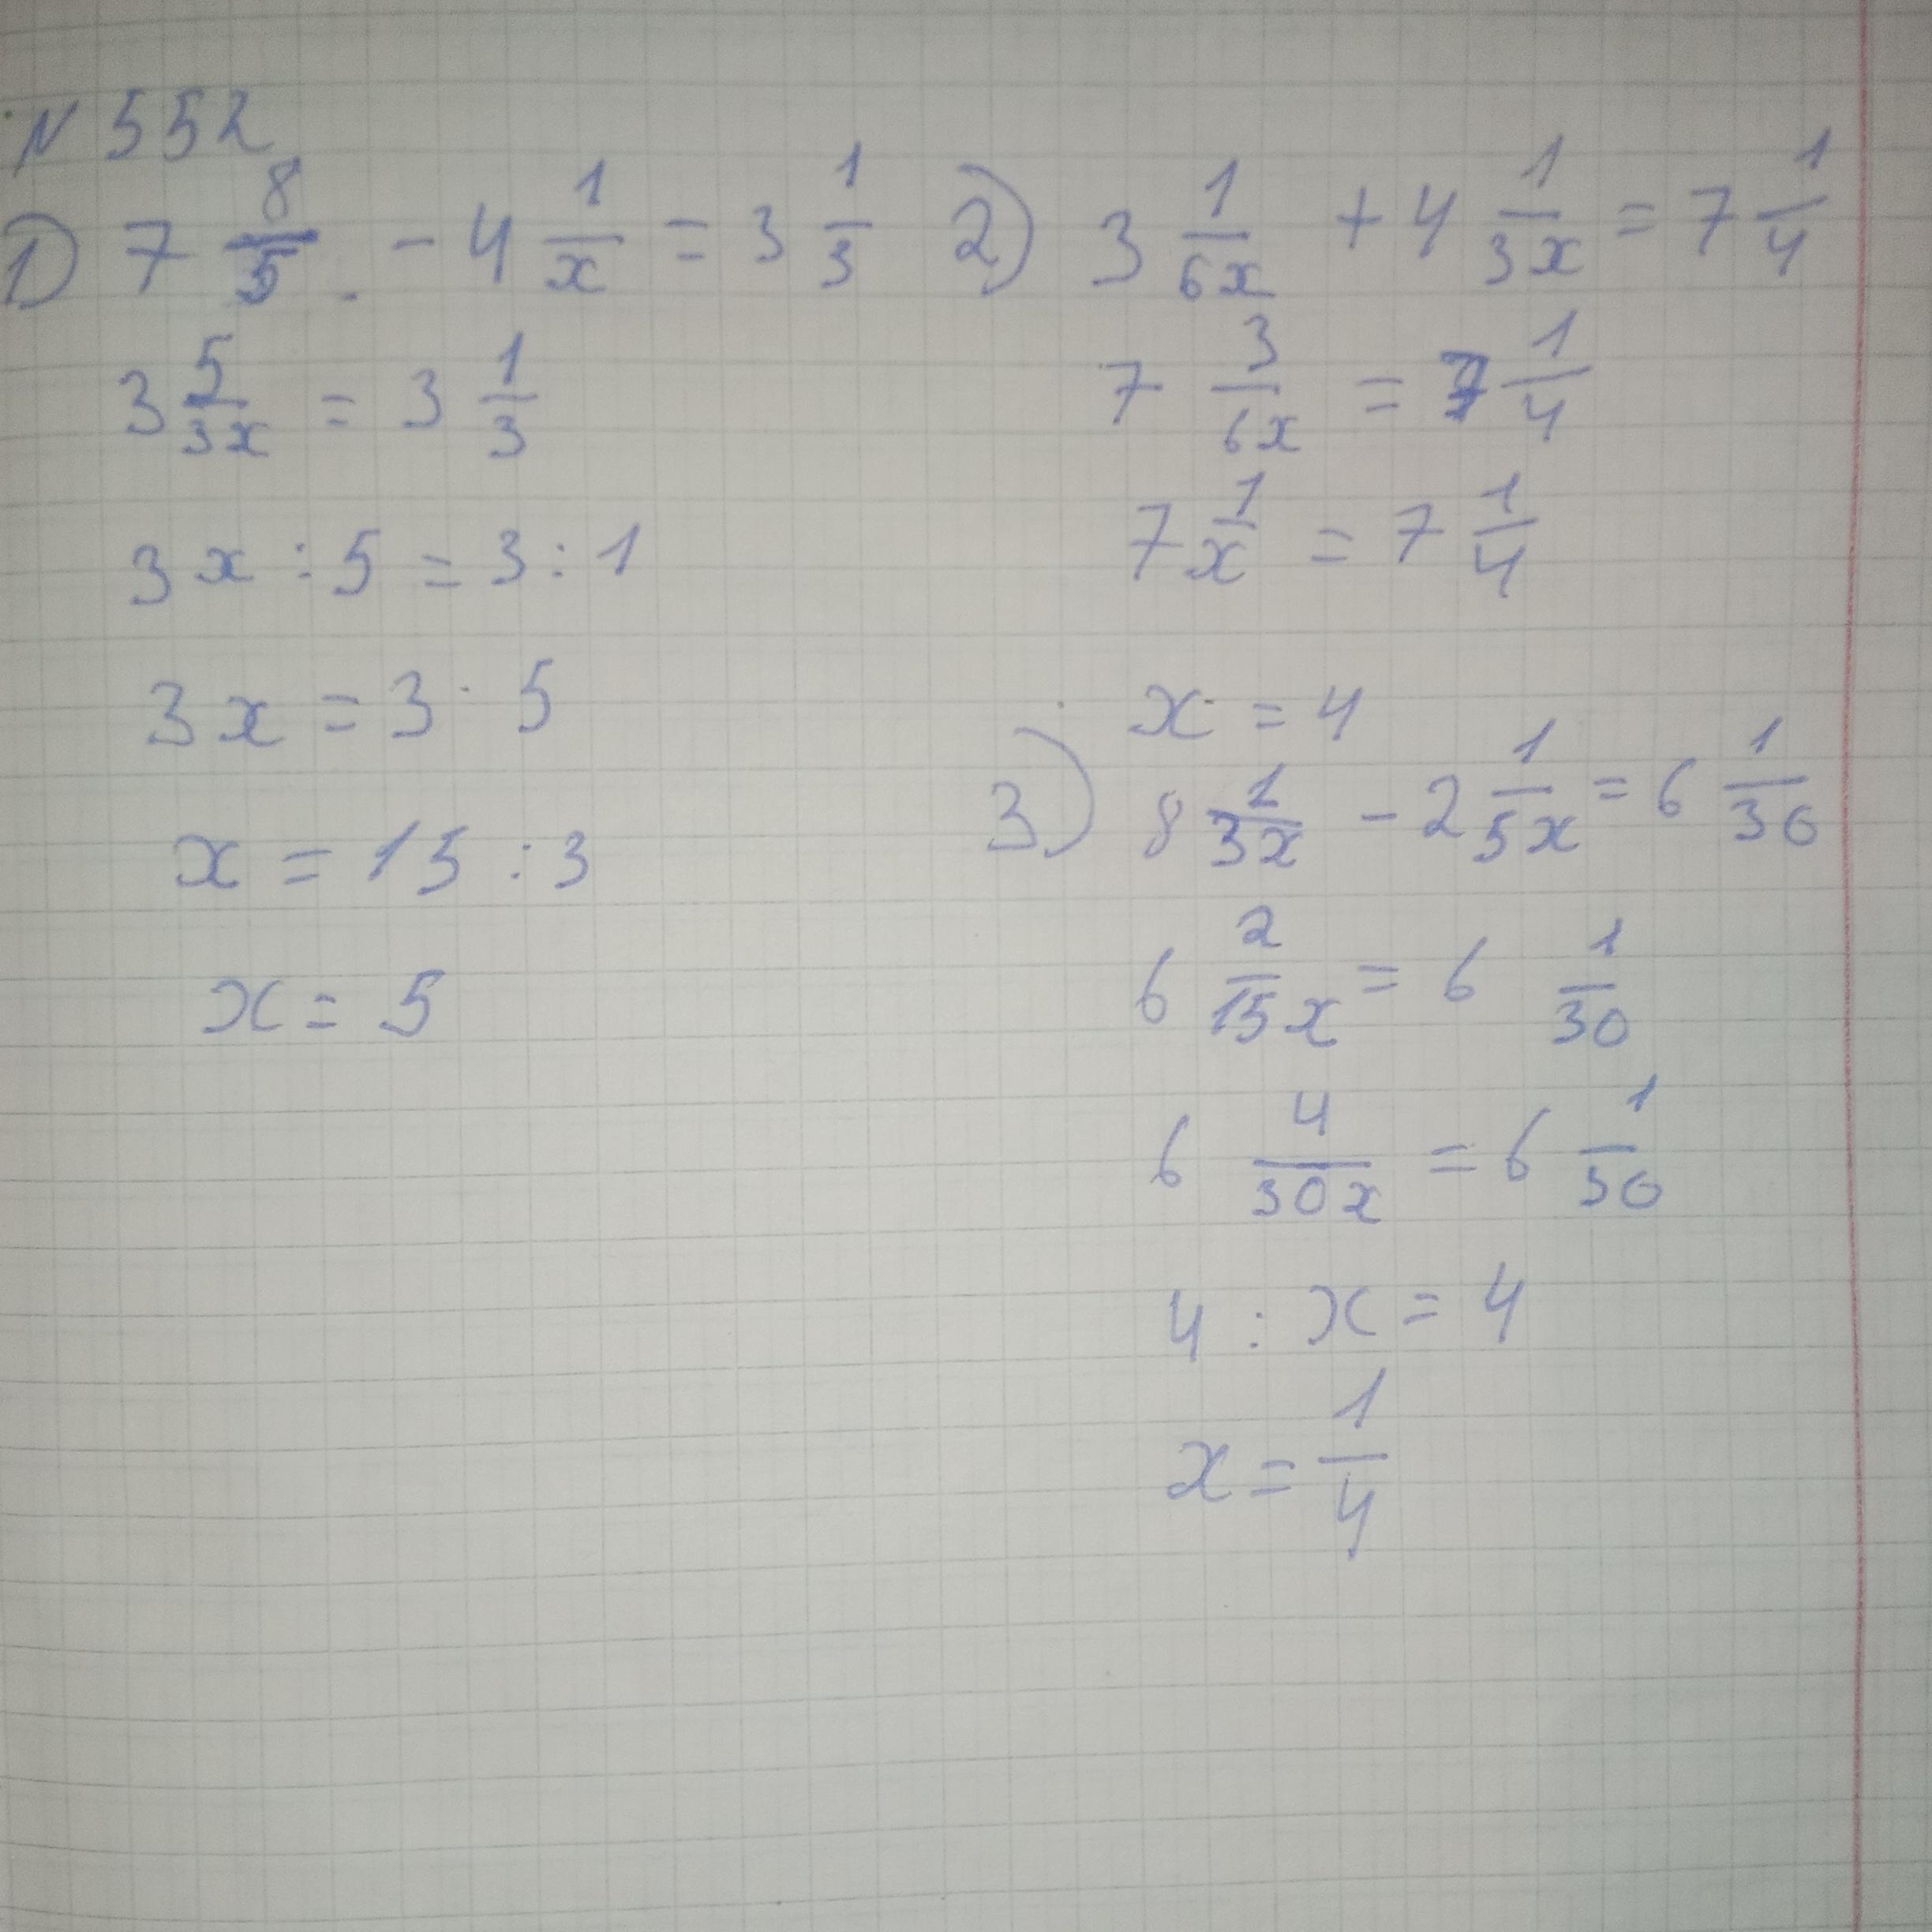 N 552
1) 7 8/5 - 4 1/x = 3 1/3
3 5/3x = 3 1/3
3x : 5 = 3 : 1
3x = 3 · 5
x = 15 : 3
x = 5
2) 3 1/6x + 4 1/3x = 7 1/4
7 3/6x = 7 1/4
7 1/x = 7 1/4
x = 4
3) 8 1/3x - 2 1/5x = 6 1/30
6 2/15x = 6 1/30
6 4/30x = 6 1/30
4 : x = 4
x = 1/4